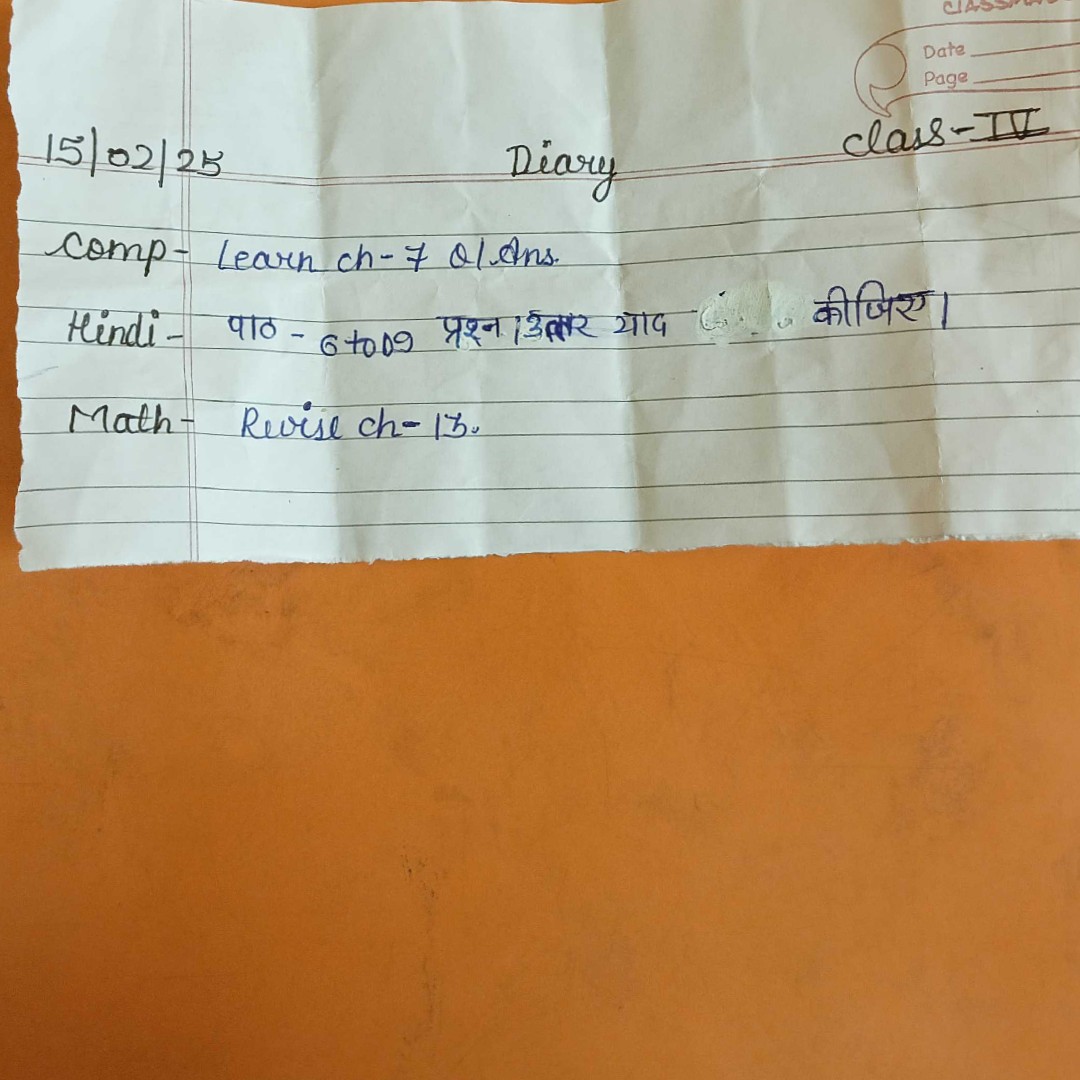 Date
Page
15/02/25 Diary class-IV
Comp- Learn ch-7 Q/.Ans.
Hindi- पाठ - 6 to 09 प्रश्न।उत्तर याद कीजिए।
Math- Revise ch-13.